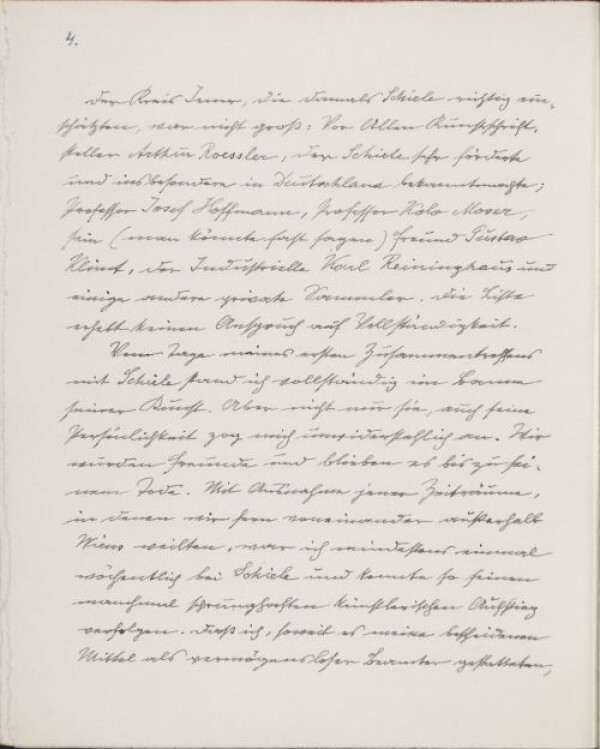 4.
Der Kreis Jener, die damals Schiele richtig ein-
schätzten, war nicht groß: Vor Allen Kunstschrift-
steller Arthur Roessler, der Schiele sehr förderte
und insbesondere in Deutschland bekanntmachte;
Professor Josef Hoffmann, Professor Kolo Moser,
sein (man könnte fast sagen) Freund Gustav
Klimt, der Industrielle Karl Reininghaus und
einige andere private Sammler. Die Liste
erhebt keinen Anspruch auf Vollständigkeit.
Vom Tage meines ersten Zusammentreffens
mit Schiele stand ich vollständig im Banne
seiner Kunst. Aber nicht nur sie, auch seine
Persönlichkeit zog mich unwiderstehlich an. Wir
wurden Freunde und blieben es bis zu sei-
nem Tode. Mit Ausnahme jener Zeiträume,
in denen wir fern voneinander außerhalb
Wiens weilten, war ich mindestens einmal
wöchentlich bei Schiele und konnte so seinen
manchmal sprunghaften künstlerischen Aufstieg
verfolgen. Daß ich, soweit es meine bescheidenen
Mittel als vermögensloser Beamter gestatteten,